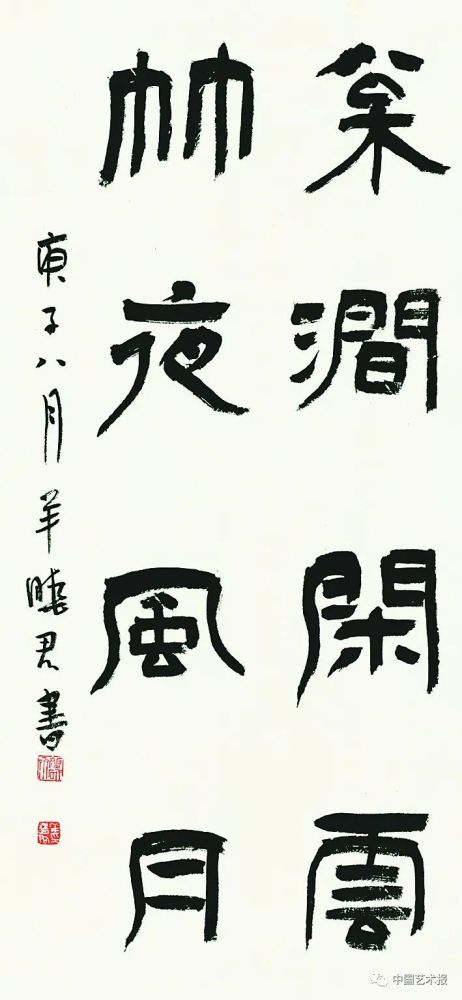 枀澗閑雲
竹夜風月
庚子八月羊曉君書
中国艺术报